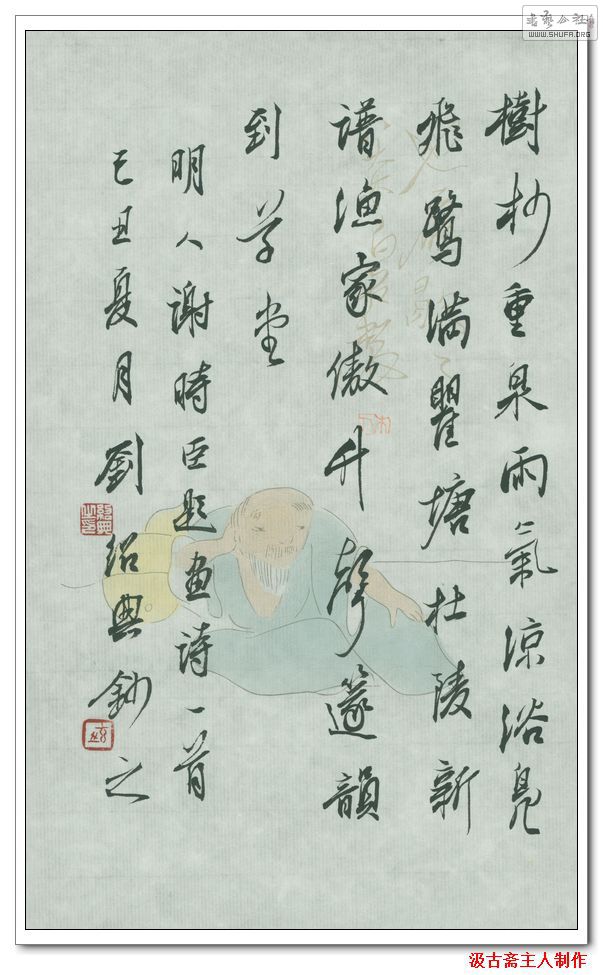 樹杪重泉雨氣涼浴鳧
飛鷺滿瞿塘杜陵新
譜漁家傲升聲邃韻
到草堂
明人謝時臣題畫詩一首
己丑夏月劉紹典鈔之
書藝公社
WWW.SHUFA.ORG
汲古斋主人制作